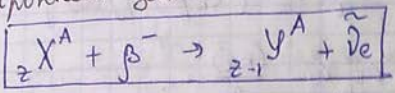 ₂X^A + β⁻ → ₂₋₁Y^A + ν̃e